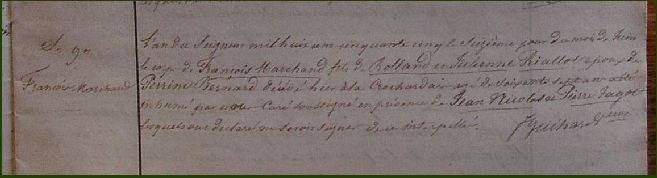 S. 9e
François Marchand
L'an du Seigneur mil huit cent cinquante cinq le Seizième jour du mois de Juin
le corps de François Marchand fils de Rolland et Julienne Riallot époux de
Perrine Bernard décédé hier à la Crochardais agé de Soixante sept ans a été
inhumé par nous Curé soussigné en présence de Jean Nicolas et Pierre Fagot
lesquels ont déclaré ne savoir signer de ce interpellés.
J Guihard